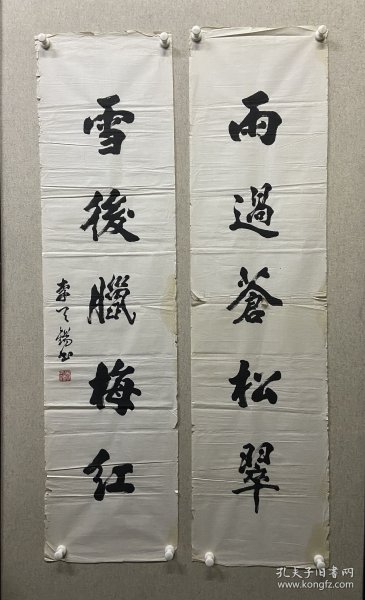 雨過蒼松翠
雪後臘梅紅
李天錫書
孔夫子旧书网
www.kongfz.com